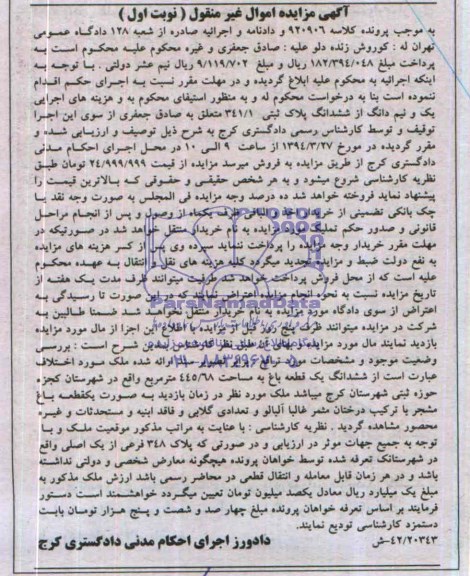 آگهی مزایده اموال غیر منقول ( نوبت اول )
به موجب پرونده کلاسه ۹۲۰۹۰۶ و دادنامه و اجرائیه صادره از شعبه ۱۲۸ دادگاه عمومی
تهران له : کوروش زنده دلو علیه : صادق جعفری و غیره محکوم علیه محکوم است به
پرداخت مبلغ ۱۸۲/۳۹۴/۰۴۸ ریال و مبلغ ۹/۱۱۹/۷۰۲ ریال نیم عشر دولتی . با توجه به
اینکه اجرائیه به محکوم علیه ابلاغ گردیده و در مهلت مقرر نسبت به اجرای حکم اقدام
ننموده است بنا به درخواست محکوم له و به منظور استیفای محکوم به و هزینه های اجرایی
یک و نیم دانگ از ششدانگ پلاک ثبتی ۳۴۱/۱ متعلق به صادق جعفری از سوی این اجرا
توقیف و توسط کارشناس رسمی دادگستری کرج به شرح ذیل توصیف و ارزیابی شده و
مقرر گردیده در مورخ ۱۳۹۴/۳/۲۷ از ساعت ۹ الی ۱۰ در محل اجرای احکام مدنی
دادگستری کرج از طریق مزایده به فروش میرسد مزایده از قیمت ۲۴/۹۹۹/۹۹۹ تومان طبق
نظریه کارشناسی شروع میشود و به هر شخص حقیقی و حقوقی که بالاترین قیمت را
پیشنهاد نماید فروخته خواهد شد ده درصد وجه مزایده فی المجلس به صورت وجه نقد یا
چک بانکی تضمینی از خریدار اخذ و الباقی ظرف یکماه از وصول و پس از انجام مراحل
قانونی و صدور حکم تملیک مورد مزایده به نام خریدار منتقل خواهد شد در صورتیکه در
مهلت مقرر خریدار وجه مزایده را پرداخت ننماید سپرده وی پس از کسر هزینه های مزایده
به نفع دولت ضبط و مزایده تجدید میگردد کلیه هزینه های نقل و انتقال به عهده محکوم
علیه است که از محل فروش پرداخت خواهد شد طرفیت میتوانند ظرف مدت یک هفته از
تاریخ مزایده نسبت به نحوه انجام مزایده اعتراض نمایند که در این صورت تا رسیدگی به
اعتراض از سوی دادگاه مورد مزایده به نام خریدار منتقل نخواهد شد ضمنا طالبین به
شرکت در مزایده میتوانند ظرف پنج روز قبل از مزایده با اطلاع این اجرا از مال مورد مزایده
بازدید نمایند مال مورد مزایده و بهای آن طبق نظر کارشناس بدین شرح است : بررسی
وضعیت موجود و مشخصات مورد ترافع برابر تصویر سند ارائه شده ملک مورد اختلاف
عبارت است از ششدانگ یک قطعه باغ به مساحت ۴۴۵/۶۸ مترمربع واقع در شهرستان کجزء
حوزه ثبتی شهرستان کرج میباشد ملک مورد نظر در زمان بازدید به صورت یکقطعه باغ
مشجر با ترکیب درختان مثمر غالبا آلبالو و تعدادی گلابی و فاقد ابنیه و مستحدثات و غیره
محصور مشاهده گردید . نظریه کارشناسی : با عنایت به مراتب مذکور موقعیت ملک و با
توجه به جمیع جهات موثر در ارزیابی و در صورتی که پلاک ۳۴۸ فرعی از یک اصلی واقع
در شهرستانک تعرفه شده توسط خواهان پرونده هیچگونه معارض شخصی و دولتی نداشته
باشد و در هر زمان قابل معامله و انتقال قطعی در محاضر رسمی باشد ارزش ملک مذکور به
مبلغ یک میلیارد ریال معادل یکصد میلیون تومان تعیین میگردد خواهشمند است دستور
فرمایند بر اساس تعرفه خواهان پرونده مبلغ چهار صد و شصت و پنج هزار تومان بابت
دستمزد کارشناسی تودیع نمایند.
۴۲/۲۰۳۴۳-ش
دادورز اجرای احکام مدنی دادگستری کرج
ParsNamadData